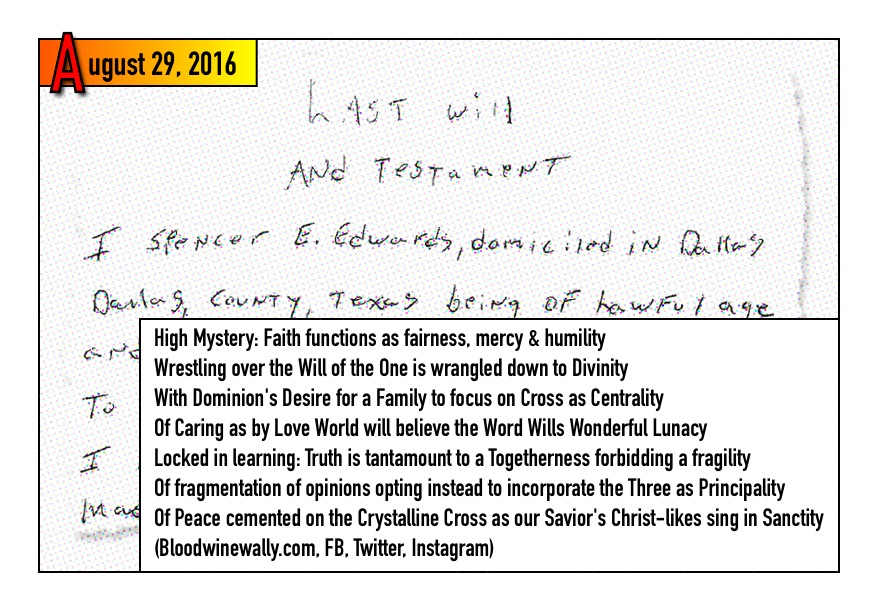 August 29, 2016
LAST will
ANd TesTamenT
I Spencer E. Edwards, domiciled iN Dallas
Dallas, County, Texas being OF LawFul age
and
To
I
High Mystery: Faith functions as fairness, mercy & humility
Wrestling over the Will of the One is wrangled down to Divinity
With Dominion's Desire for a Family to focus on Cross as Centrality
Of Caring as by Love World will believe the Word Wills Wonderful Lunacy
Locked in learning: Truth is tantamount to a Togetherness forbidding a fragility
Of fragmentation of opinions opting instead to incorporate the Three as Principality
Of Peace cemented on the Crystalline Cross as our Savior's Christ-likes sing in Sanctity
(Bloodwinewally.com, FB, Twitter, Instagram)